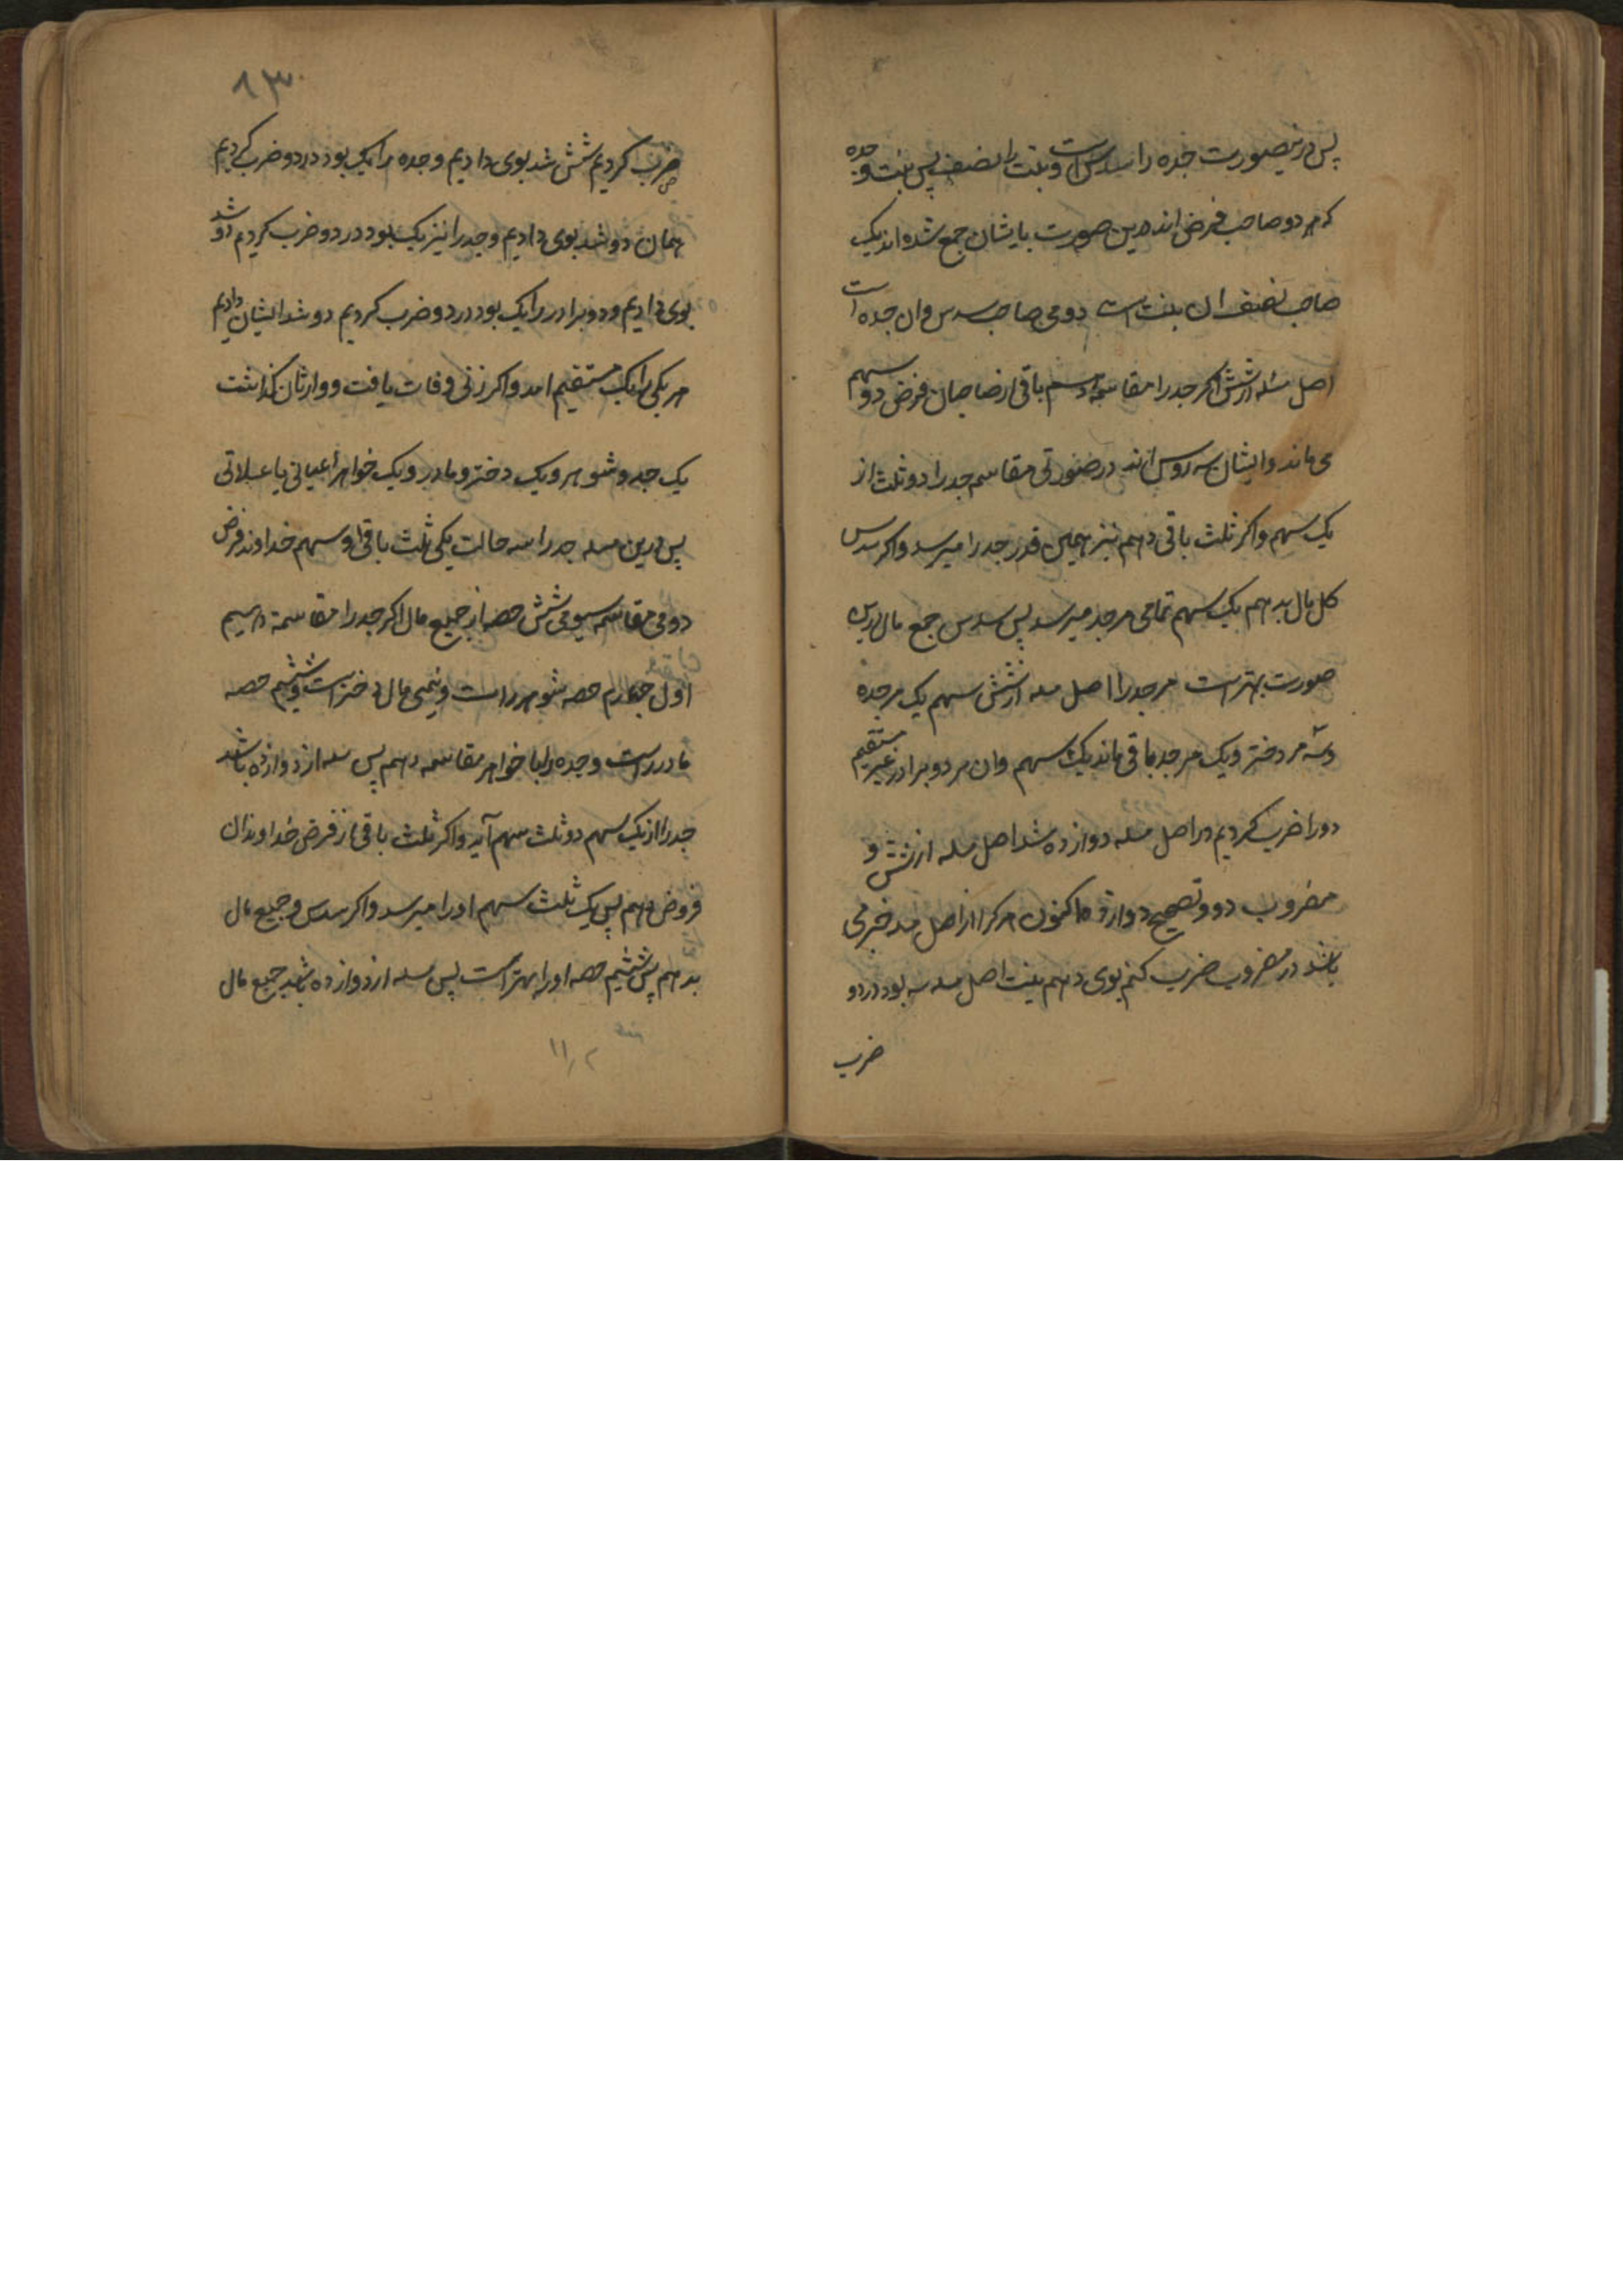 پس درینصورت جده را سدس است و بنت را نصف پس بنت و جده
که هر دو صاحب فرض اند درین صورت بایشان جمع شده اند یک
صاحب نصف ان بنت است دومی صاحب سدس وان جده است
اصل مسئله از شش اکر جد را مقاسمه دهیم باقی از صاحبان فرض دو سهم
می ماند وایشان سه روس اند درصورتی مقاسم جد را دو ثلث از
یک سهم واکر ثلث باقی دهم نیز همین قدر جد را میرسد واکر سدس
کل مال بدهم یک سهم تمامی مر جد میرسد پس سدس جمع مال درین
صورت بهتر است مر جد را اصل مسله از شش سهم یک مر جده
وسه مر دختر ویک مر جد باقی ماند یک سهم وان مر دو برادر غیر مستقیم
دو را ضرب کردیم در اصل مسله دوازده شد اصل مسله از شش و
مضروب دو وتصحیح دوازده اکنون هر کرا از اصل مسله خبر می
باشد در مضروب ضرب کنم بوی دهم بنت اصل مسله سه بود در دو
ضرب
۸۳
ضرب کردیم شش شد بوی دادیم وجده را یک بود در دو ضرب کردیم
همان دو شد بوی دادیم وجد را نیز یک بود در دو ضرب کردم دو شد
بوی دادیم ودو برادر را یک بود در دو ضرب کردیم دو شد ایشان دادیم
هر یکی را یک مستقیم امد واکر زنی وفات یافت ووارثان کذاشت
یک جد وشوهر ویک دختر ومادر ویک خواهر اعیانی یا علاتی
پس درین مسله جد را سه حالت یکی ثلث باقی از سهم خداوند فرض
دومی مقاسمه سیومی شش حصه از جمیع مال اکر جد را مقاسمه دهیم
اول چهارم حصه شوهر راست ونیمی مال دختر راست وششم حصه
مادر راست وجده را با خواهر مقاسمه دهم پس مسله از دوازده باشد
جد را از یک سهم دو ثلث سهم آید واکر ثلث باقی از فرض خداوندان
فروض دهم پس یک ثلث سهم اورا میرسد واکر سدس وجمیع مال
بدهم پس ششم حصه اورا بهتر است پس مسله از دوازده باشد جمیع مال